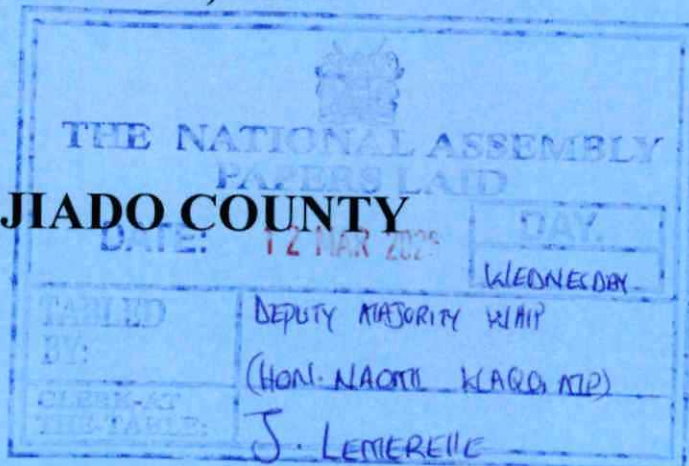 THE NATIONAL ASSEMBLY
PAPERS LAID
JIADO COUNTY
DATE: 12 MAR 2025 DAY.
WEDNESDAY
TABLED BY: DEPUTY MAJORITY WHIP
(HON. NAOMI WAQO, MP)
CLERK-AT THE-TABLE: J.